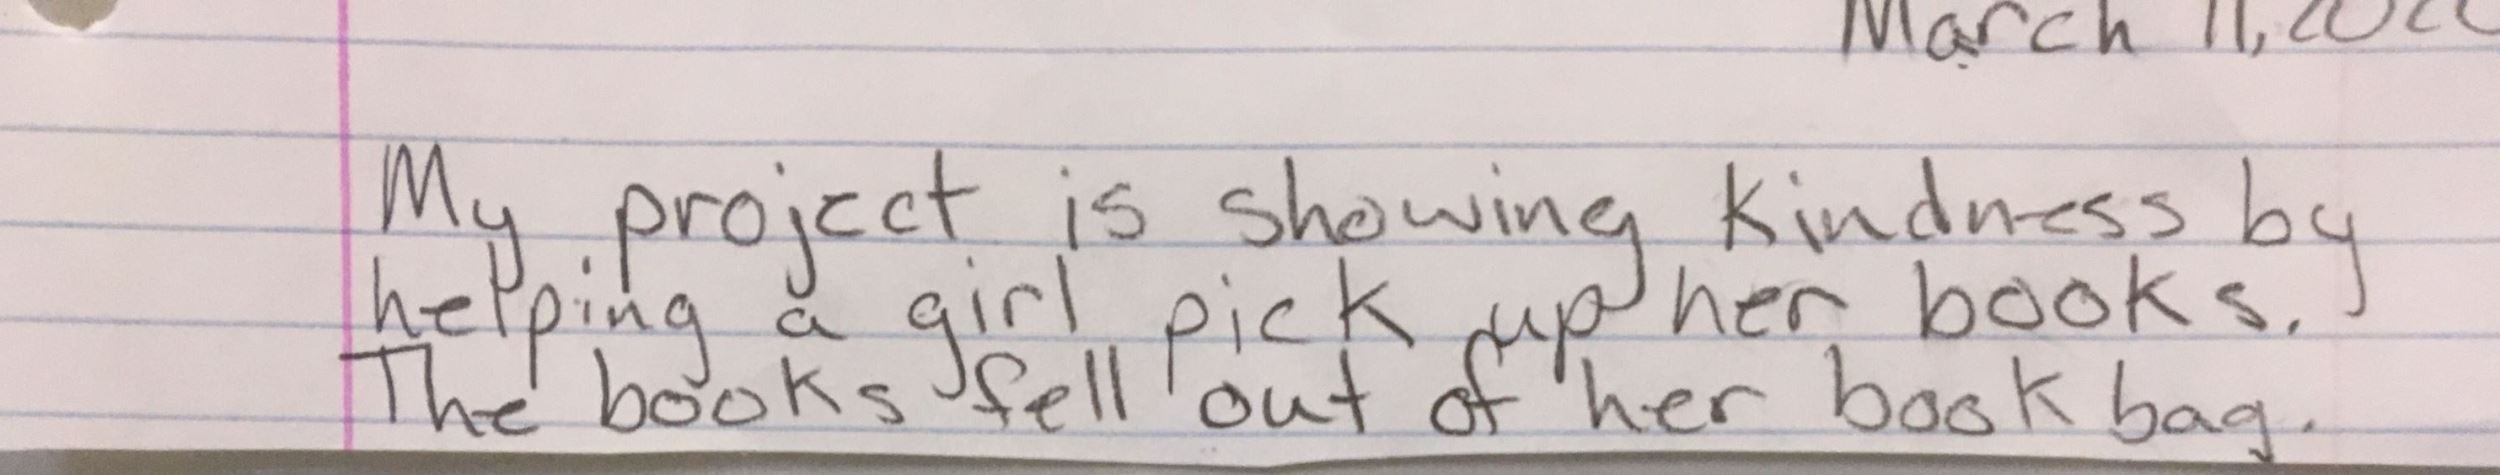 March 11,
My project is showing kindness by
helping a girl pick up her books.
The books fell out of her book bag.